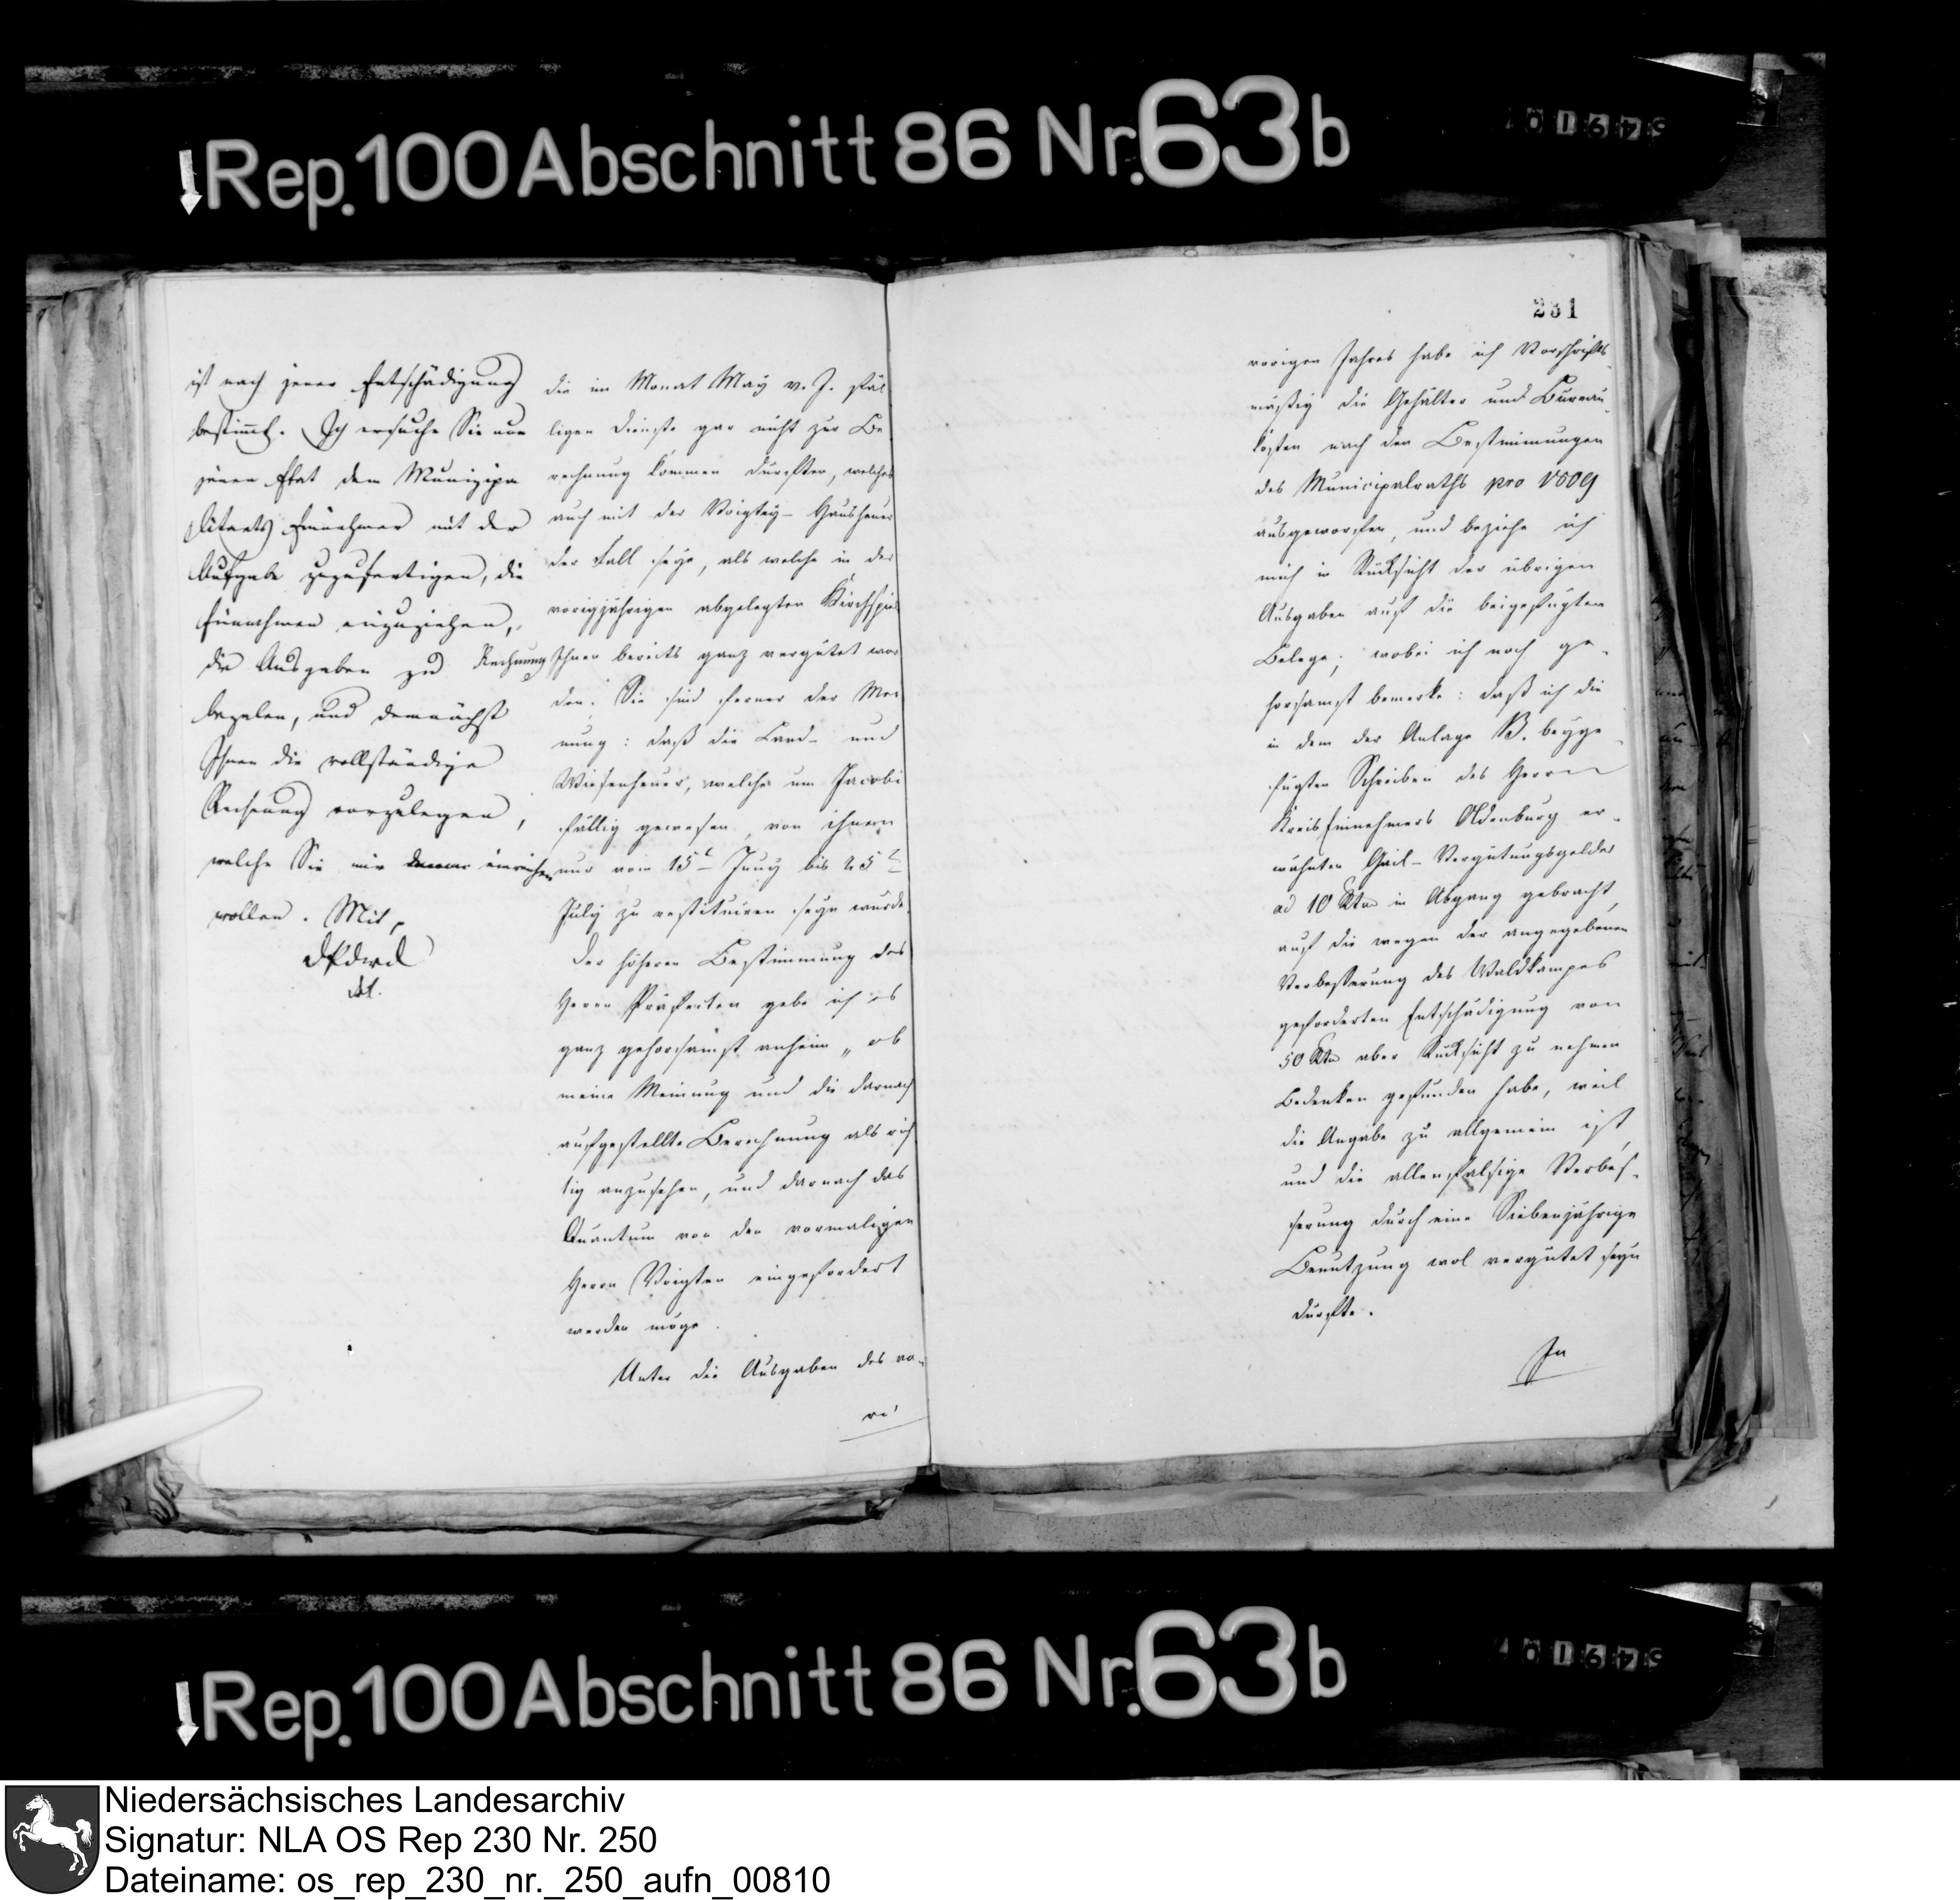 Rep. 100 Abschnitt 86 Nr. 63b
231
ist nach jener Entschädigung
bestimmt. Ich ersuche Sie nun
jenen Etat dem Munizipa
litaets Einnehmer mit der
Aufgabe zuzufertigen, die
Einnahmen einzuziehen,
die Ausgaben zu Rechnung
bezalen, und demnächst
Ihnen die vollständige
Rechnung vorzulegen,
welche Sie mir einreichen
wollen. Mit
die im Monat May v. J. fäl
ligen Dienste gar nicht zur Be
rechnung kommen durften, welches
auch mit der Voigtey- Hausheuer
der Fall seye, als welche in der
vorigjährigen abgelegten Kirchspiel
Ihnen bereits ganz vergütet wor
den. Sie sind ferner der Mei
nung: daß die Land- und
Wiesenheuer, welche um Jacobi
fällig gewesen, von ihnen
nur vom 15t Juny bis 25t
July zu restituiren seyn würde.
Der höheren Bestimmung des
Herrn Präfecten gebe ich es
ganz gehorsamst anheim „ ob
meine Meinung und die darnach
aufgestellte Berechnung als rich
tig anzusehen, und darnach das
Quantum von den vormaligen
Herrn Voigten eingefordert
werden möge.
Unter die Ausgaben des vo-
ri
vorigen Jahres habe ich Vorschrifts-
mäßig die Gehälter und Bureau-
kosten nach den Bestimmungen
des Municipalraths pro 1809
ausgeworfen, und beziehe ich
mich in Rücksicht der übrigen
Ausgaben auf die beigefügten
Belege; wobei ich noch ge-
horsamst bemerke: daß ich die
in dem der Anlage B. beyge-
fügten Schreiben des Herrn
Kreis Einnehmers Oldenburg er-
wähnten Gail- Vergütungsgelder
ad 10 Rtn in Abgang gebracht,
auf die wegen der angegebenen
Verbesserung des Waldkampes
geforderten Entschädigung von
50 Rtn aber Rücksicht zu nehmen
Bedenken gefunden habe, weil
die Angabe zu allgemein ist,
und die allenfalsige Verbes-
serung durch eine Siebenjährige
Benutzung wol vergütet seyn
dürfte.
In
Rep. 100 Abschnitt 86 Nr. 63b
Niedersächsisches Landesarchiv
Signatur: NLA OS Rep 230 Nr. 250
Dateiname: os_rep_230_nr._250_aufn_00810